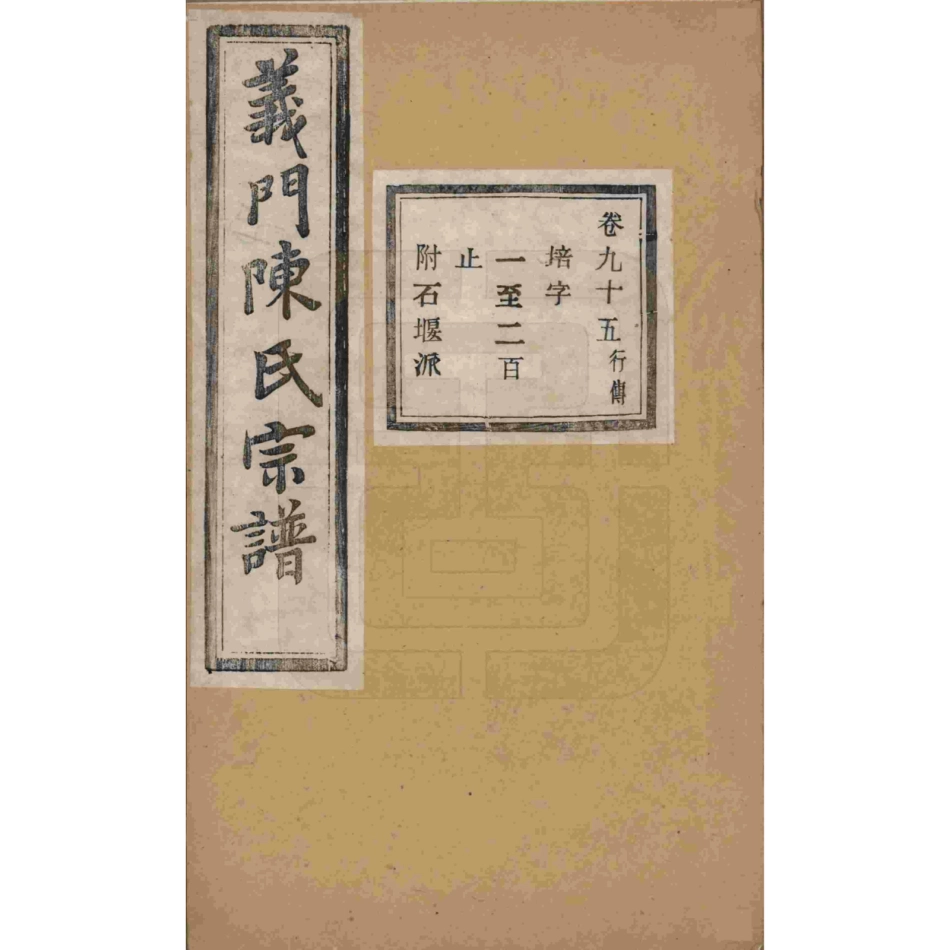 義門陳氏宗譜
卷九十五行傳
培字
一至二百
止
附石堰派